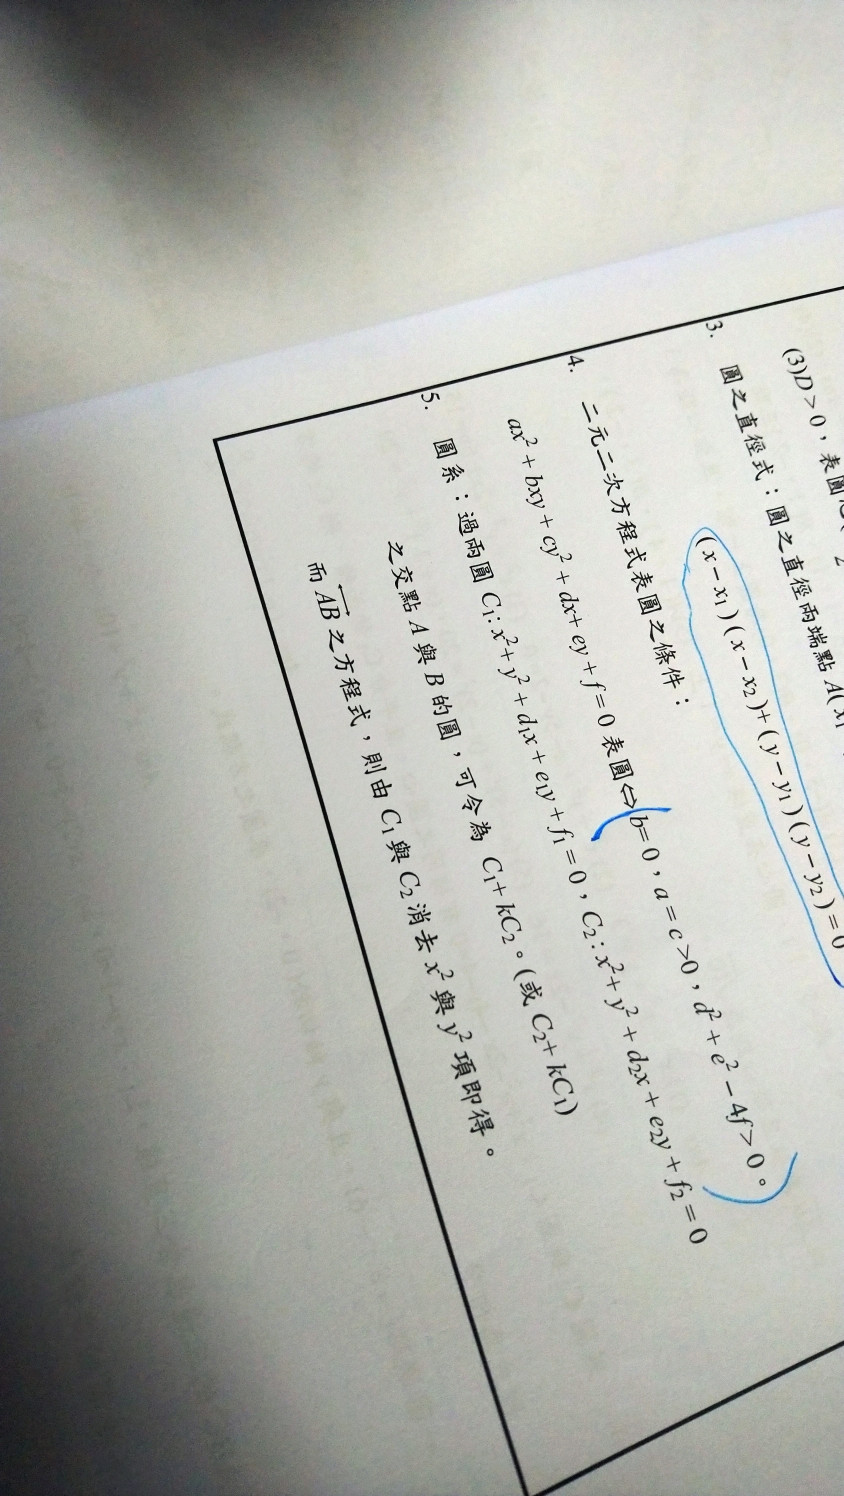 (3)D > 0，表圓
3. 圓之直徑式：圓之直徑兩端點 A(x₁
(x − x₁)(x − x₂) + (y − y₁)(y − y₂) = 0
4. 二元二次方程式表圓之條件：
ax² + bxy + cy² + dx + ey + f = 0 表圓⇔b = 0，a = c > 0，d² + e² − 4f > 0。
5. 圓系：過兩圓 C₁: x² + y² + d₁x + e₁y + f₁ = 0，C₂: x² + y² + d₂x + e₂y + f₂ = 0
之交點 A 與 B 的圓，可令為 C₁ + kC₂。(或 C₂ + kC₁)
而 AB 之方程式，則由 C₁ 與 C₂ 消去 x² 與 y² 項即得。